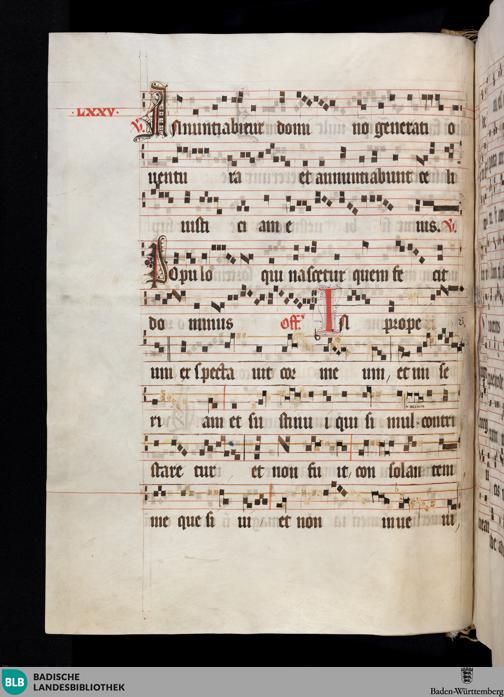 ·LXXV·
V. Annuntiabitur domi no generati o
uentu ra et annuntiabunt ce li
iusti ci am e ius. V.
Popu lo qui nascetur quem fe cit
do minus off. In prope
um et specta uit cor me um, et mi se
ri am et su stinu i qui si mul contri
stare tur et non fu it, con solan tem
me que si ui et non inue ni
BLB BADISCHE
LANDESBIBLIOTHEK
Baden-Württemberg